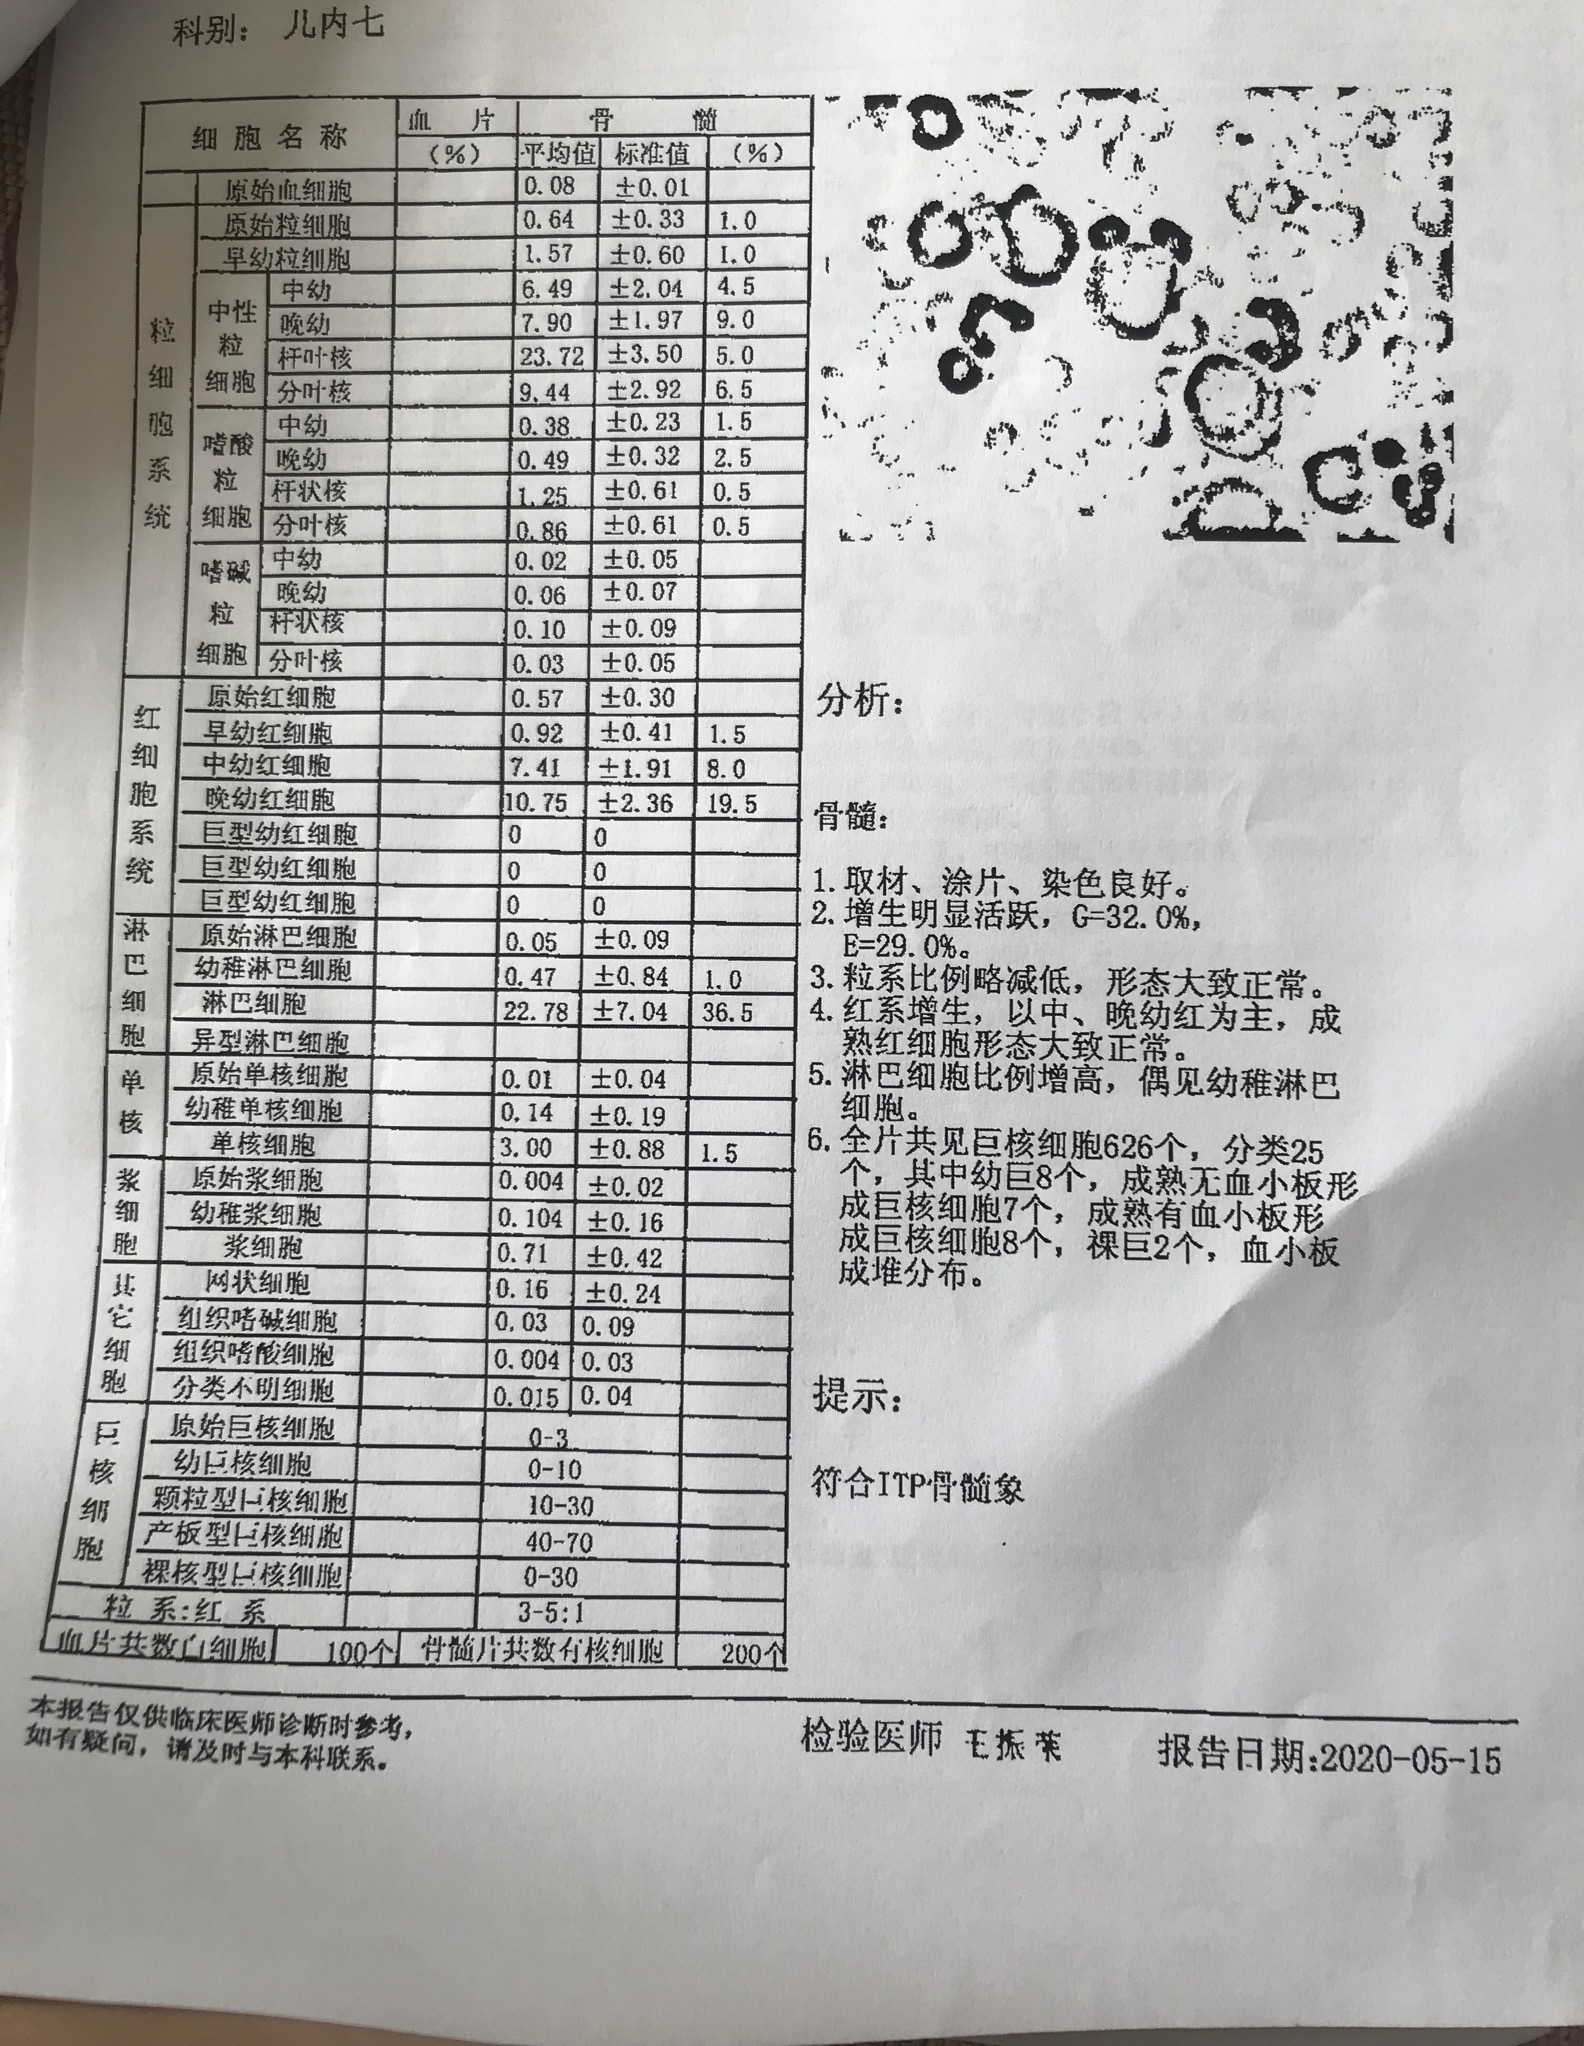 科别： 儿内七
细 胞 名 称 血 片 骨 髓
（%） 平均值 标准值 （%）
原始血细胞 0.08 ±0.01
粒细胞系统
原始粒细胞 0.64 ±0.33 1.0
早幼粒细胞 1.57 ±0.60 1.0
中性粒细胞
中幼 6.49 ±2.04 4.5
晚幼 7.90 ±1.97 9.0
杆叶核 23.72 ±3.50 5.0
分叶核 9.44 ±2.92 6.5
嗜酸粒细胞
中幼 0.38 ±0.23 1.5
晚幼 0.49 ±0.32 2.5
杆状核 1.25 ±0.61 0.5
分叶核 0.86 ±0.61 0.5
嗜碱粒细胞
中幼 0.02 ±0.05
晚幼 0.06 ±0.07
杆状核 0.10 ±0.09
分叶核 0.03 ±0.05
红细胞系统
原始红细胞 0.57 ±0.30
早幼红细胞 0.92 ±0.41 1.5
中幼红细胞 7.41 ±1.91 8.0
晚幼红细胞 10.75 ±2.36 19.5
巨型幼红细胞 0 0
巨型幼红细胞 0 0
巨型幼红细胞 0 0
淋巴细胞
原始淋巴细胞 0.05 ±0.09
幼稚淋巴细胞 0.47 ±0.84 1.0
淋巴细胞 22.78 ±7.04 36.5
异型淋巴细胞
单核
原始单核细胞 0.01 ±0.04
幼稚单核细胞 0.14 ±0.19
单核细胞 3.00 ±0.88 1.5
浆细胞
原始浆细胞 0.004 ±0.02
幼稚浆细胞 0.104 ±0.16
浆细胞 0.71 ±0.42
其它细胞
网状细胞 0.16 ±0.24
组织嗜碱细胞 0.03 0.09
组织嗜酸细胞 0.004 0.03
分类不明细胞 0.015 0.04
巨核细胞
原始巨核细胞 0-3
幼巨核细胞 0-10
颗粒型巨核细胞 10-30
产板型巨核细胞 40-70
裸核型巨核细胞 0-30
粒 系：红 系 3-5:1
血片共数白细胞 100个 骨髓片共数有核细胞 200个
分析：
骨髓：
1. 取材、涂片、染色良好。
2. 增生明显活跃，G=32.0%，
E=29.0%。
3. 粒系比例略减低，形态大致正常。
4. 红系增生，以中、晚幼红为主，成
熟红细胞形态大致正常。
5. 淋巴细胞比例增高，偶见幼稚淋巴
细胞。
6. 全片共见巨核细胞626个，分类25
个，其中幼巨8个，成熟无血小板形
成巨核细胞7个，成熟有血小板形
成巨核细胞8个，裸巨2个，血小板
成堆分布。
提示：
符合ITP骨髓象
本报告仅供临床医师诊断时参考，
如有疑问，请及时与本科联系。
检验医师 王振荣 报告日期:2020-05-15